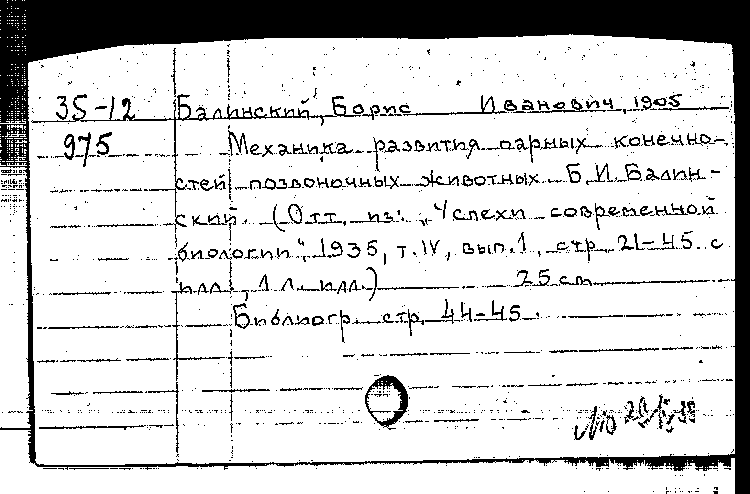 35-12 Балинский, Борис Иванович, 1905
975 Механика развития парных конечно-
стей позвоночных животных. Б.И.Балин-
ский. (Отт. из: „Успехи современной
биологии", 1935, т.IV, вып.1, стр. 21-45 с
илл., 1 л. илл.) 25 cm
Библиогр. стр. 44-45.